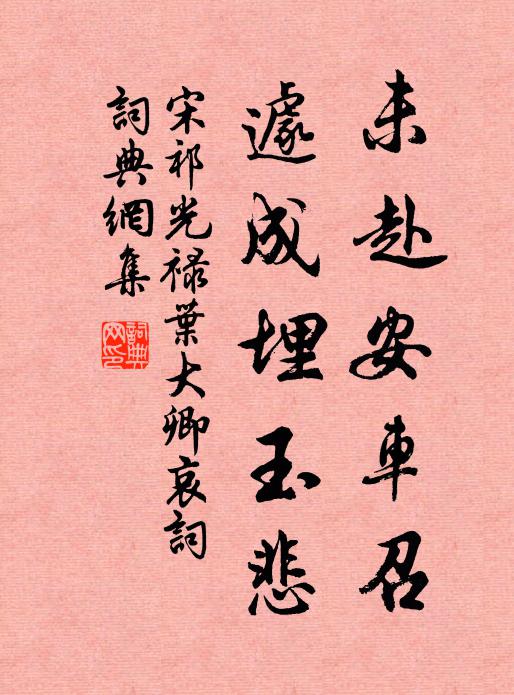 未赴安車召
遽成埋玉悲
宋祁光祿葉大卿哀詞
詞典網集
詞典網印